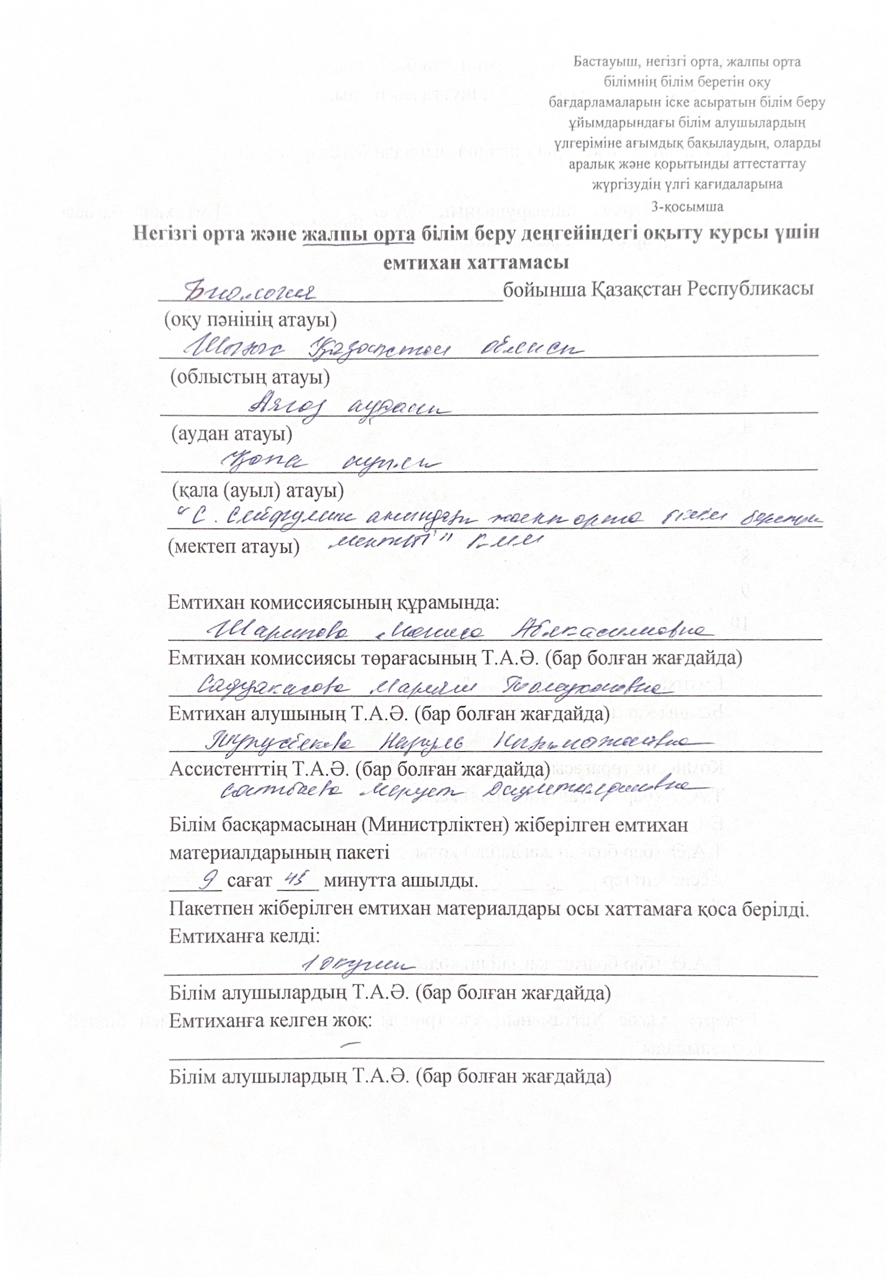 Бастауыш, негізгі орта, жалпы орта
білімнің білім беретін оқу
бағдарламаларын іске асыратын білім беру
ұйымдарындағы білім алушылардың
үлгеріміне ағымдық бақылаудың, оларды
аралық және қорытынды аттестаттау
жүргізудің үлгі қағидаларына
3-қосымша
Негізгі орта және жалпы орта білім беру деңгейіндегі оқыту курсы үшін
емтихан хаттамасы
Биология бойынша Қазақстан Республикасы
(оқу пәнінің атауы)
Шығыс Қазақстан облысы
(облыстың атауы)
Аягөз ауданы
(аудан атауы)
Қопа ауылы
(қала (ауыл) атауы)
"С. Сейфуллин атындағы жалпы орта білім беретін
(мектеп атауы) мектебі" КММ
Емтихан комиссиясының құрамында:
Шарипова Абылкасимовна
Емтихан комиссиясы төрағасының Т.А.Ә. (бар болған жағдайда)
Садуакасова Мариям
Емтихан алушының Т.А.Ә. (бар болған жағдайда)
Назгуль
Ассистенттің Т.А.Ә. (бар болған жағдайда)
Меруерт Даулеткалиевна
Білім басқармасынан (Министрліктен) жіберілген емтихан
материалдарының пакеті
9 сағат 45 минутта ашылды.
Пакетпен жіберілген емтихан материалдары осы хаттамаға қоса берілді.
Емтиханға келді:
1 оқушы
Білім алушылардың Т.А.Ә. (бар болған жағдайда)
Емтиханға келген жоқ:
–
Білім алушылардың Т.А.Ә. (бар болған жағдайда)